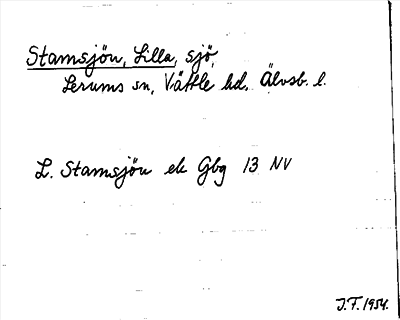 Stamsjön, Lilla, sjö,
Lerums sn, Vättle hd. Älvsb. l.
L. Stamsjön ek Gbg 13 NV
J.F. 1954.